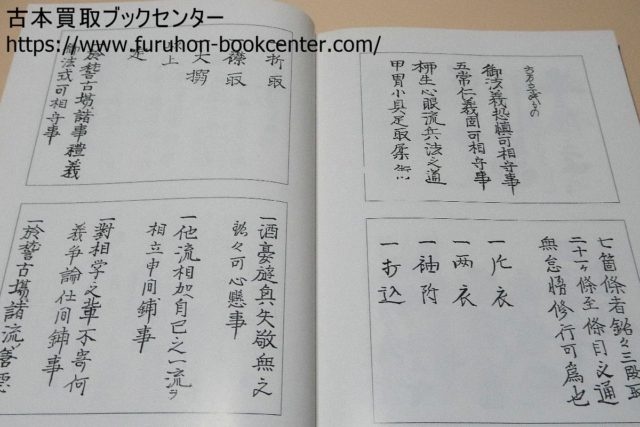 古本買取ブックセンター
https://www.furuhon-bookcenter.com/
御法義慎可相守事
五常仁義固可相守事
柳生心眼流兵法之通
甲冑小具足取柔術
七箇條者銘々三段取
二十一ヶ條至條目之通
無怠惰修行可為也
一片衣
一両衣
一袖附
一打込
折取
取
大搦
上
足
於誓古場諸事禮義
法式可相守事
一酒宴遊興失敬無之
銘々可心懸事
一他流相加自己之一流ヲ
相立申间鋪事
一對相学之輩不寄何
義争論仕间鋪事
一於誓古場諸流善悪